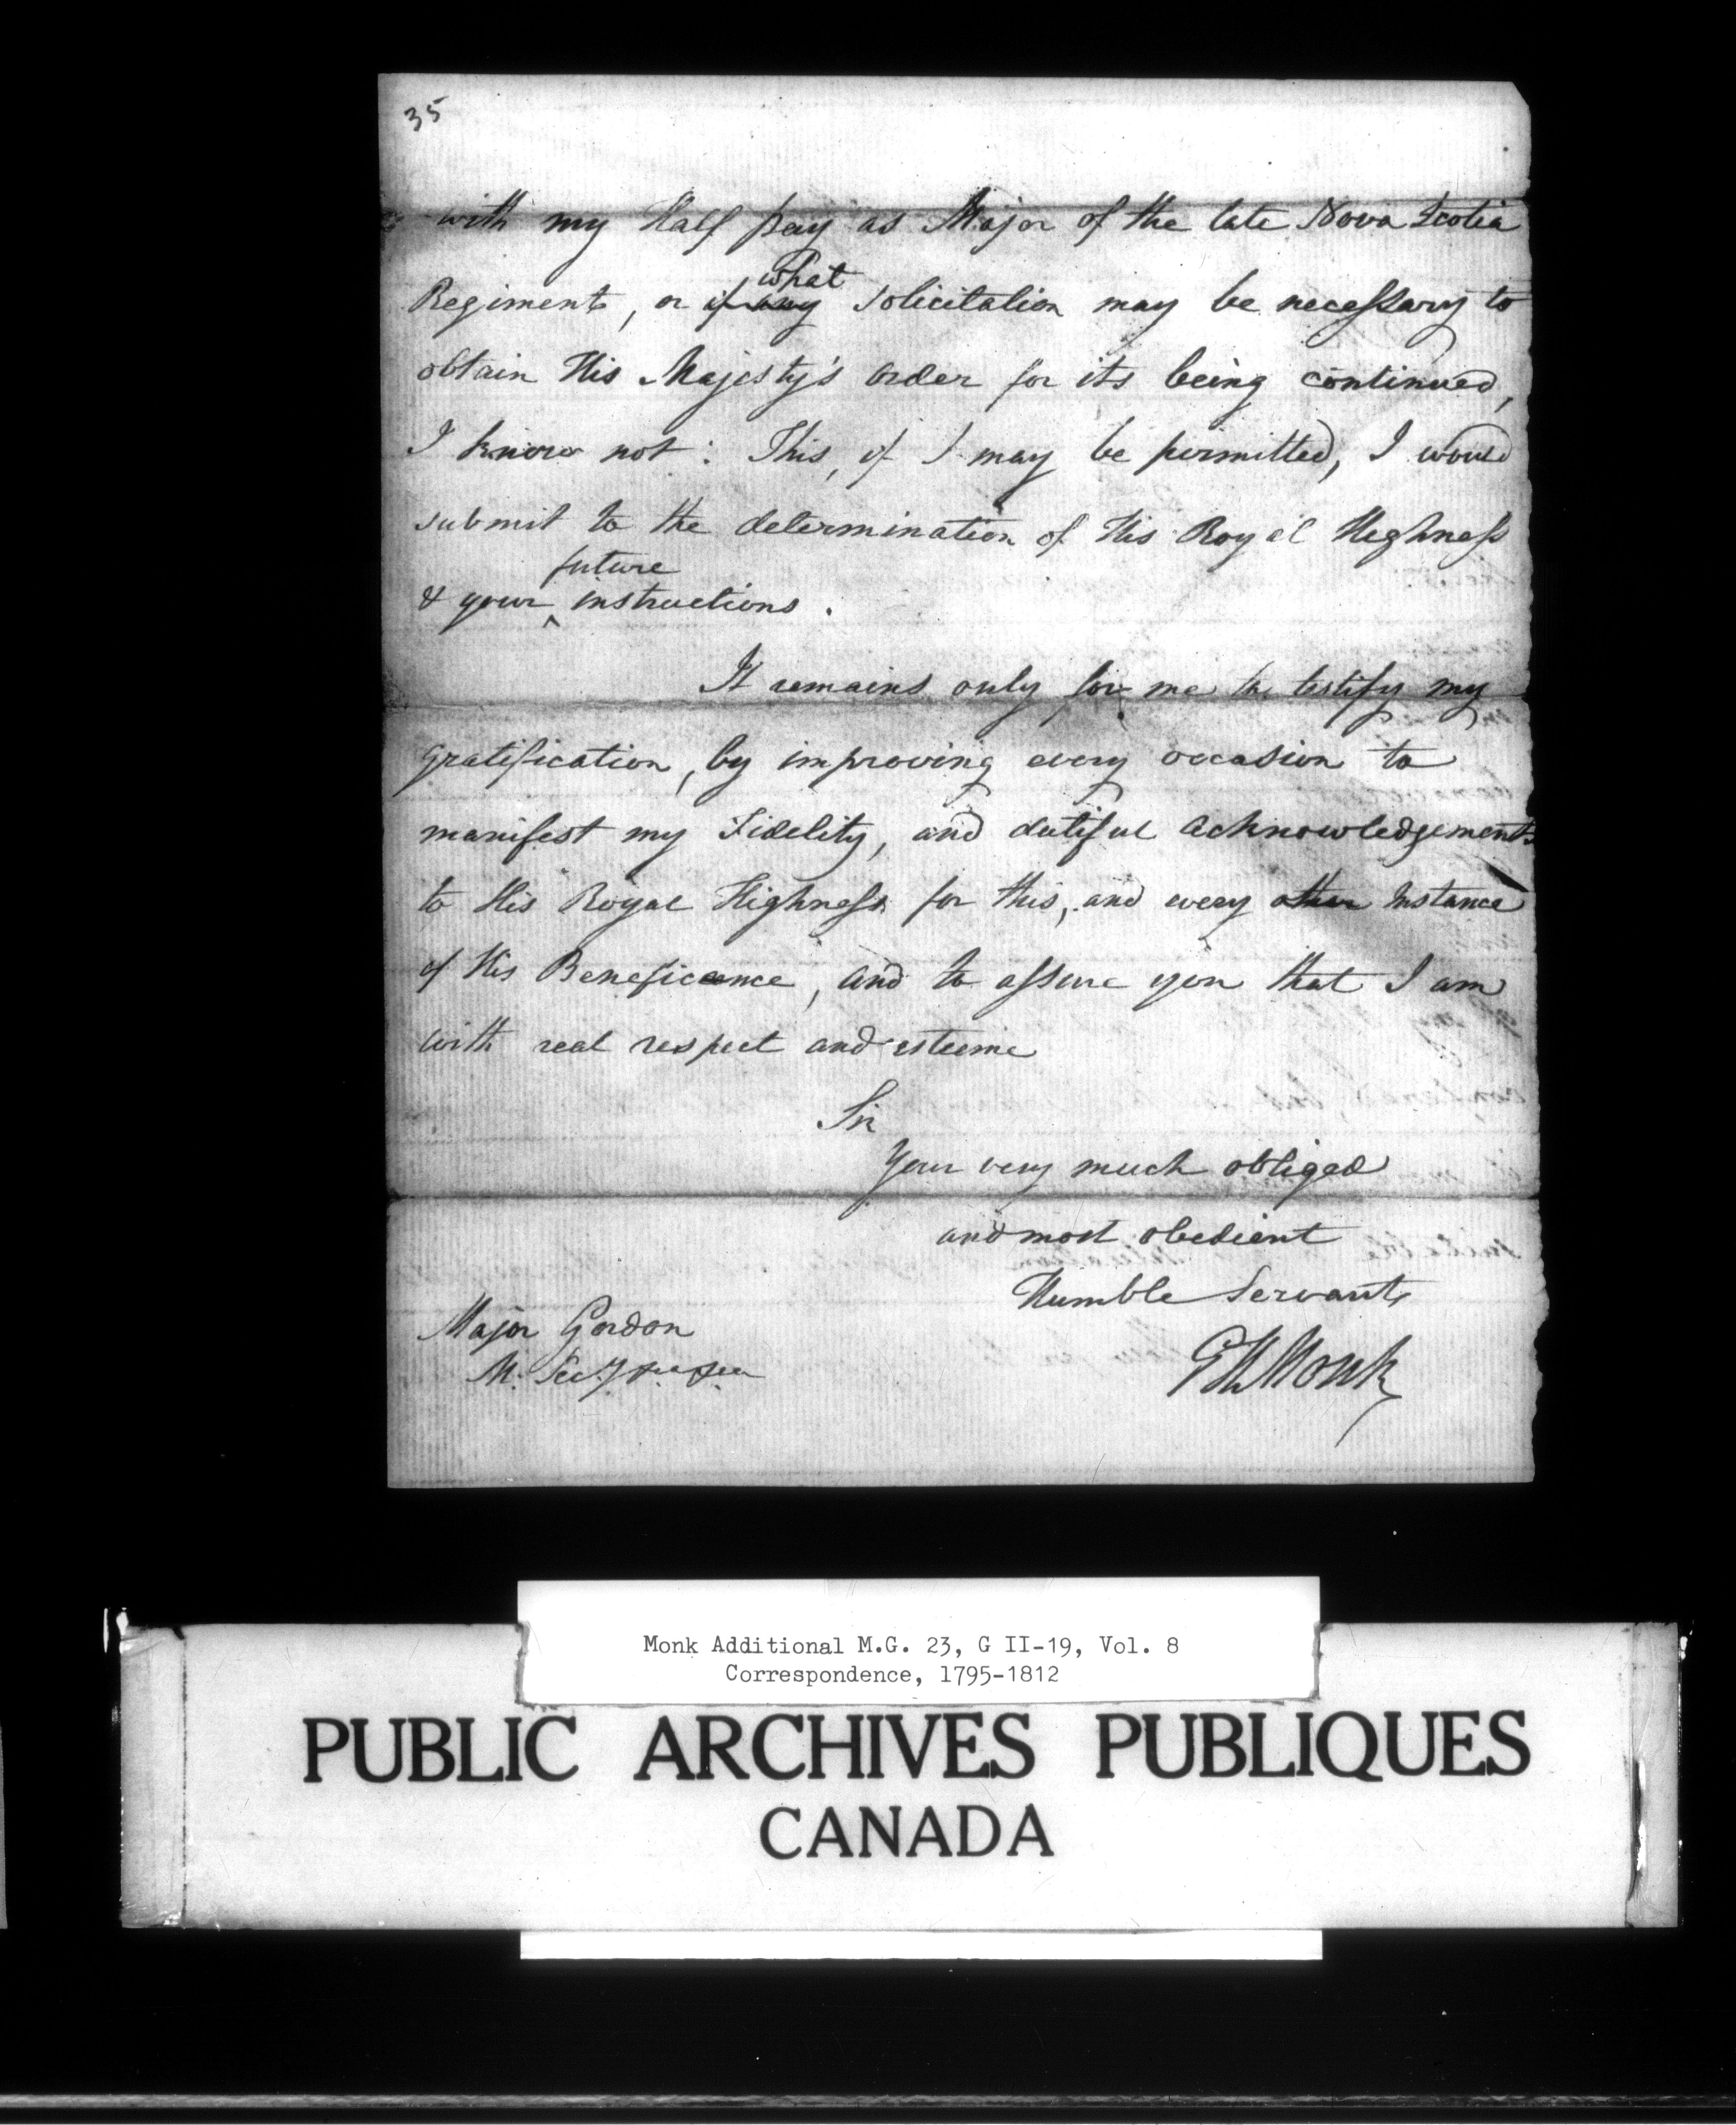 35
with my Half pay as Major of the late Nova Scotia
what
Regiment, or if any solicitation may be necessary to
obtain His Majesty's order for its being continued,
I know not: This, if I may be permitted, I would
submit to the determination of His Royal Highness
future
& your ‸ instructions.
It remains only for me to testify my
gratification, by improving every occasion to
manifest my Fidelity, and dutiful acknowledgements
to His Royal Highness for this, and every other Instance
of His Beneficence, and to assure you that I am
with real respect and esteeme
Sir
Your very much obliged
and most obedient
Humble Servant
Major Gordon
M. Secy
GHMonk
Monk Additional M.G. 23, G II-19, Vol. 8
Correspondence, 1795-1812
PUBLIC ARCHIVES PUBLIQUES
CANADA